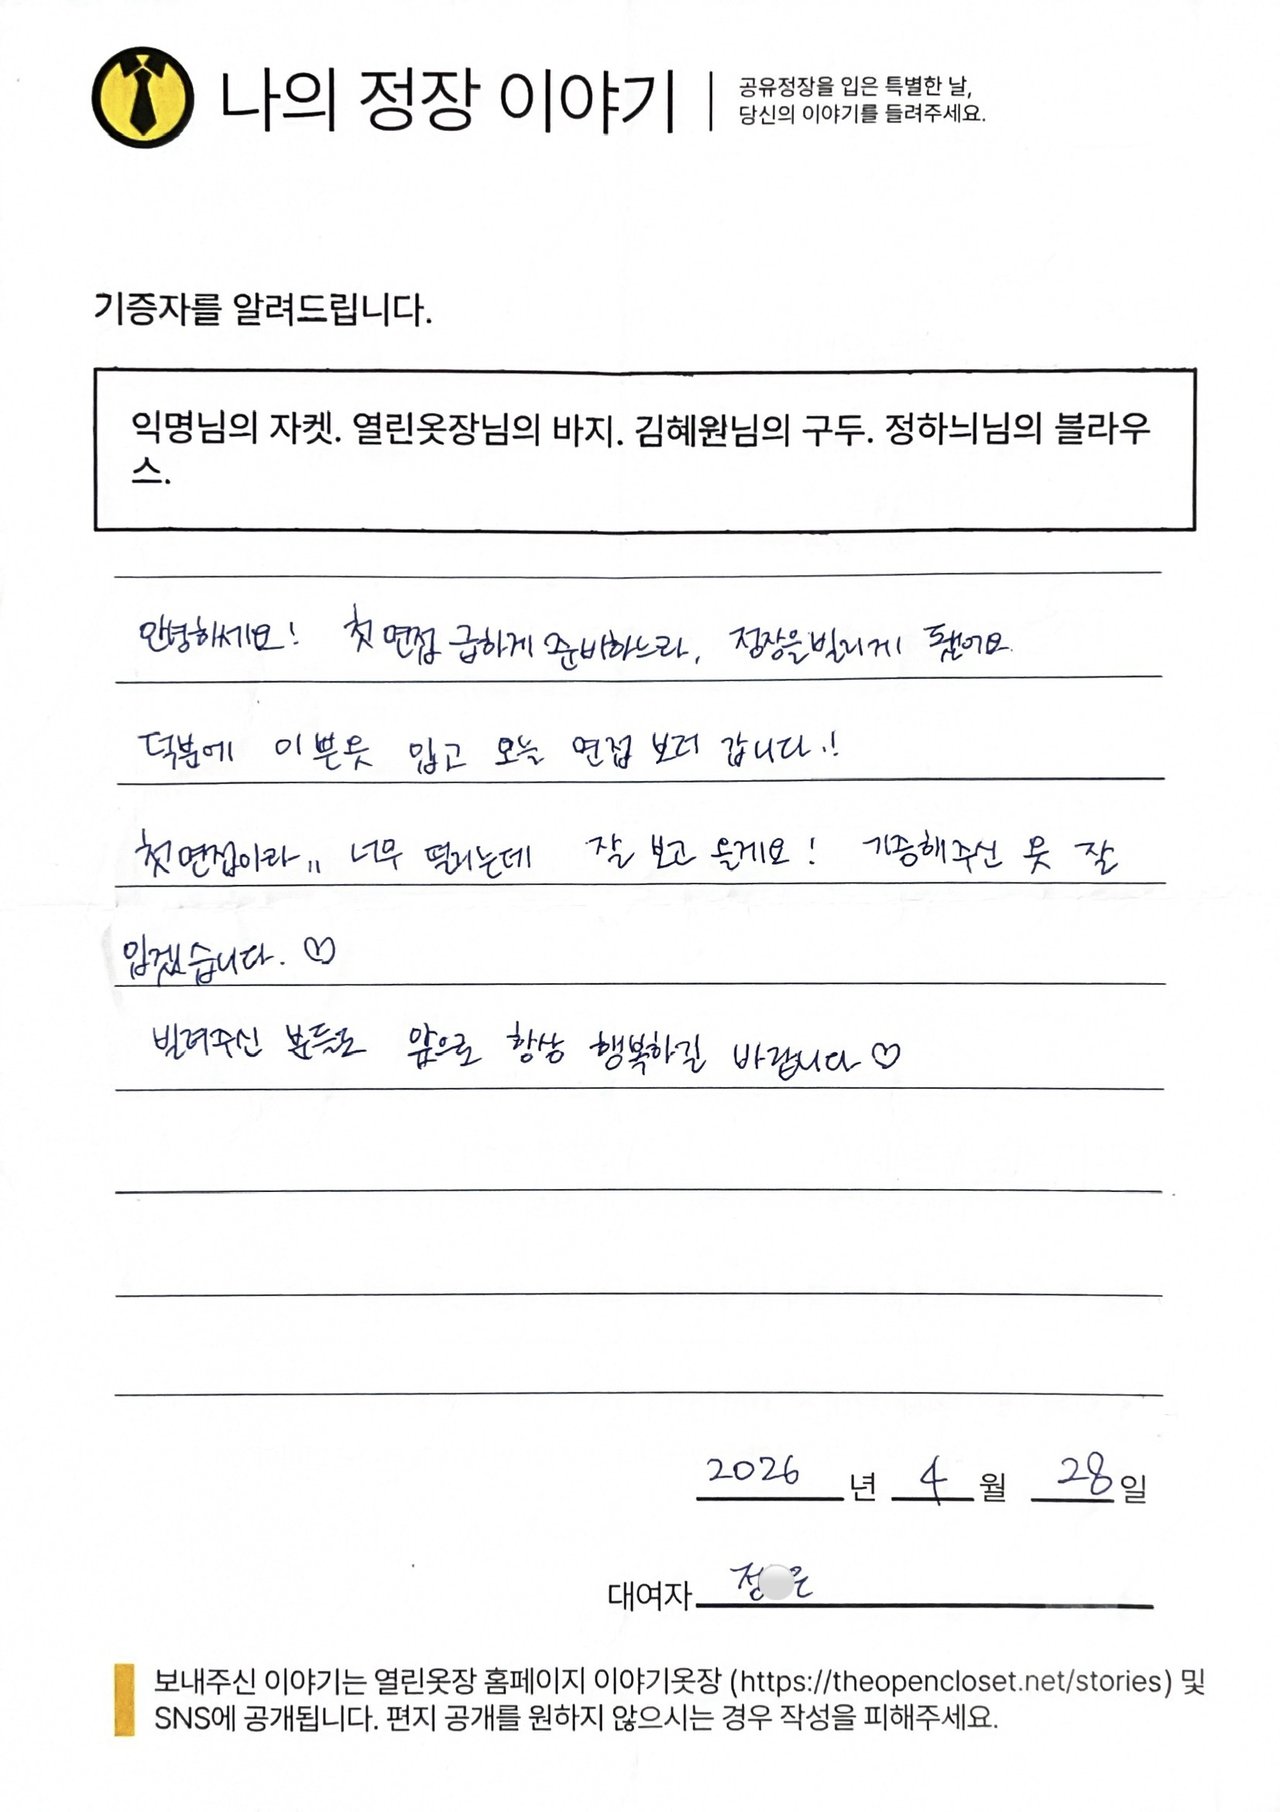 나의 정장 이야기
공유정장을 입은 특별한 날,
당신의 이야기를 들려주세요.
기증자를 알려드립니다.
익명님의 자켓. 열린옷장님의 바지. 김혜원님의 구두. 정하늬님의 블라우
스.
안녕하세요! 첫 면접 급하게 준비하느라, 정장을 빌리게 됐어요.
덕분에 이쁜옷 입고 오늘 면접 보러 갑니다.!
첫 면접이라,, 너무 떨리는데 잘 보고 올게요! 기증해주신 옷 잘
입겠습니다. ♡
빌려주신 분들도 앞으로 항상 행복하길 바랍니다 ♡
2026 년 4 월 28 일
대여자 정 은
보내주신 이야기는 열린옷장 홈페이지 이야기옷장 (https://theopencloset.net/stories) 및
SNS에 공개됩니다. 편지 공개를 원하지 않으시는 경우 작성을 피해주세요.